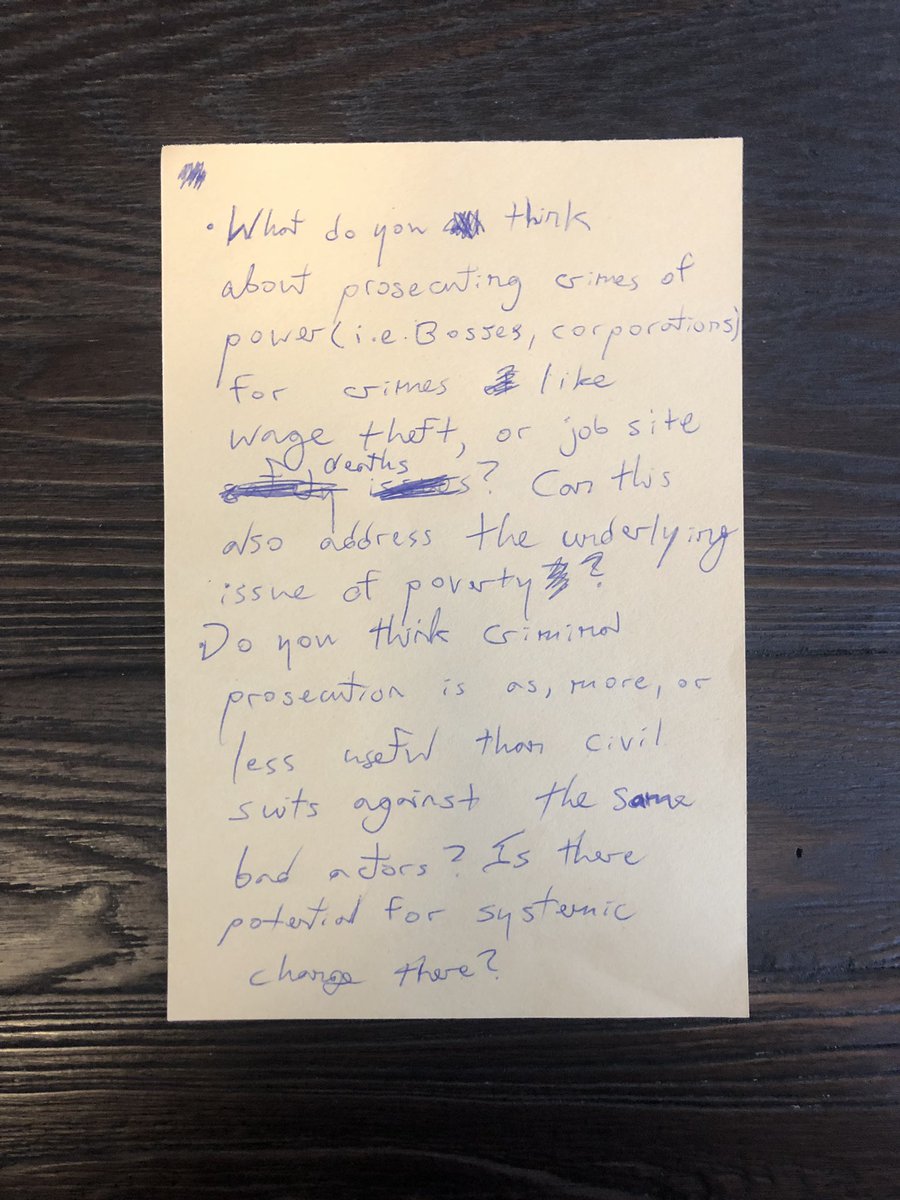 • What do you think
about prosecuting crimes of
power (i.e. Bosses, corporations)
for crimes like
wage theft, or job site
deaths? Can this
also address the underlying
issue of poverty?
Do you think criminal
prosecution is as, more, or
less useful than civil
suits against the same
bad actors? Is there
potential for systemic
change there?